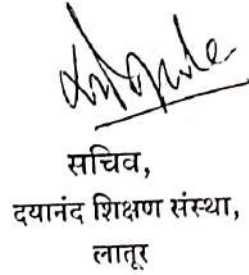 सचिव,
दयानंद शिक्षण संस्था,
लातूर